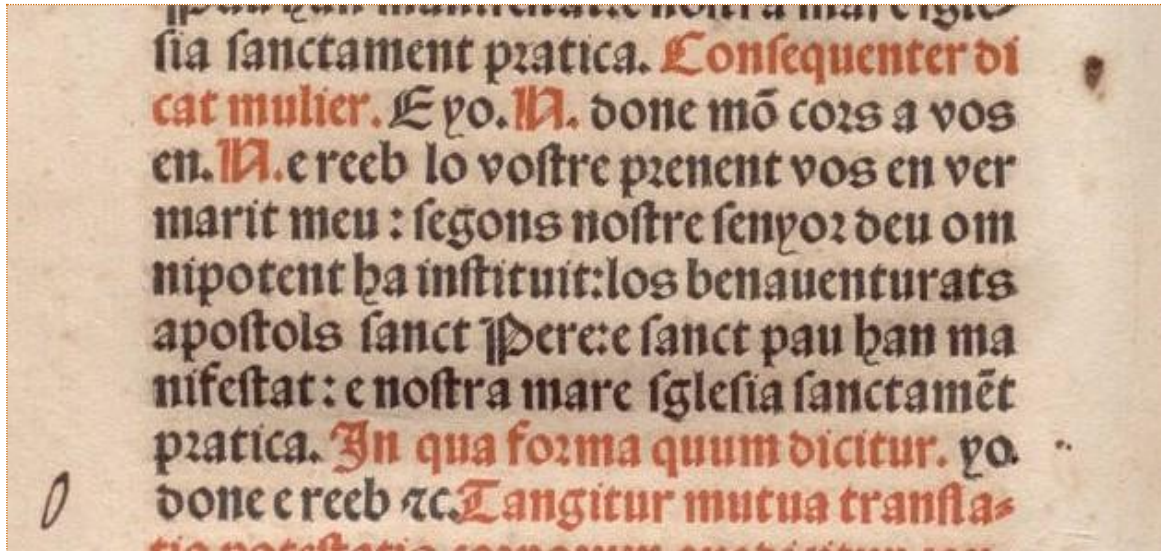 sia sanctament pratica. Consequenter di
cat mulier. E yo. N. done mõ cors a vos
en. N. e reeb lo vostre prenent vos en ver
marit meu : segons nostre senyor deu om
nipotent ha instituit: los benauenturats
apostols sanct Pere: e sanct pau han ma
nifestat : e nostra mare sglesia sanctamẽt
pratica. In qua forma quum dicitur. yo.
done e reeb ⁊c. Tangitur mutua transla-